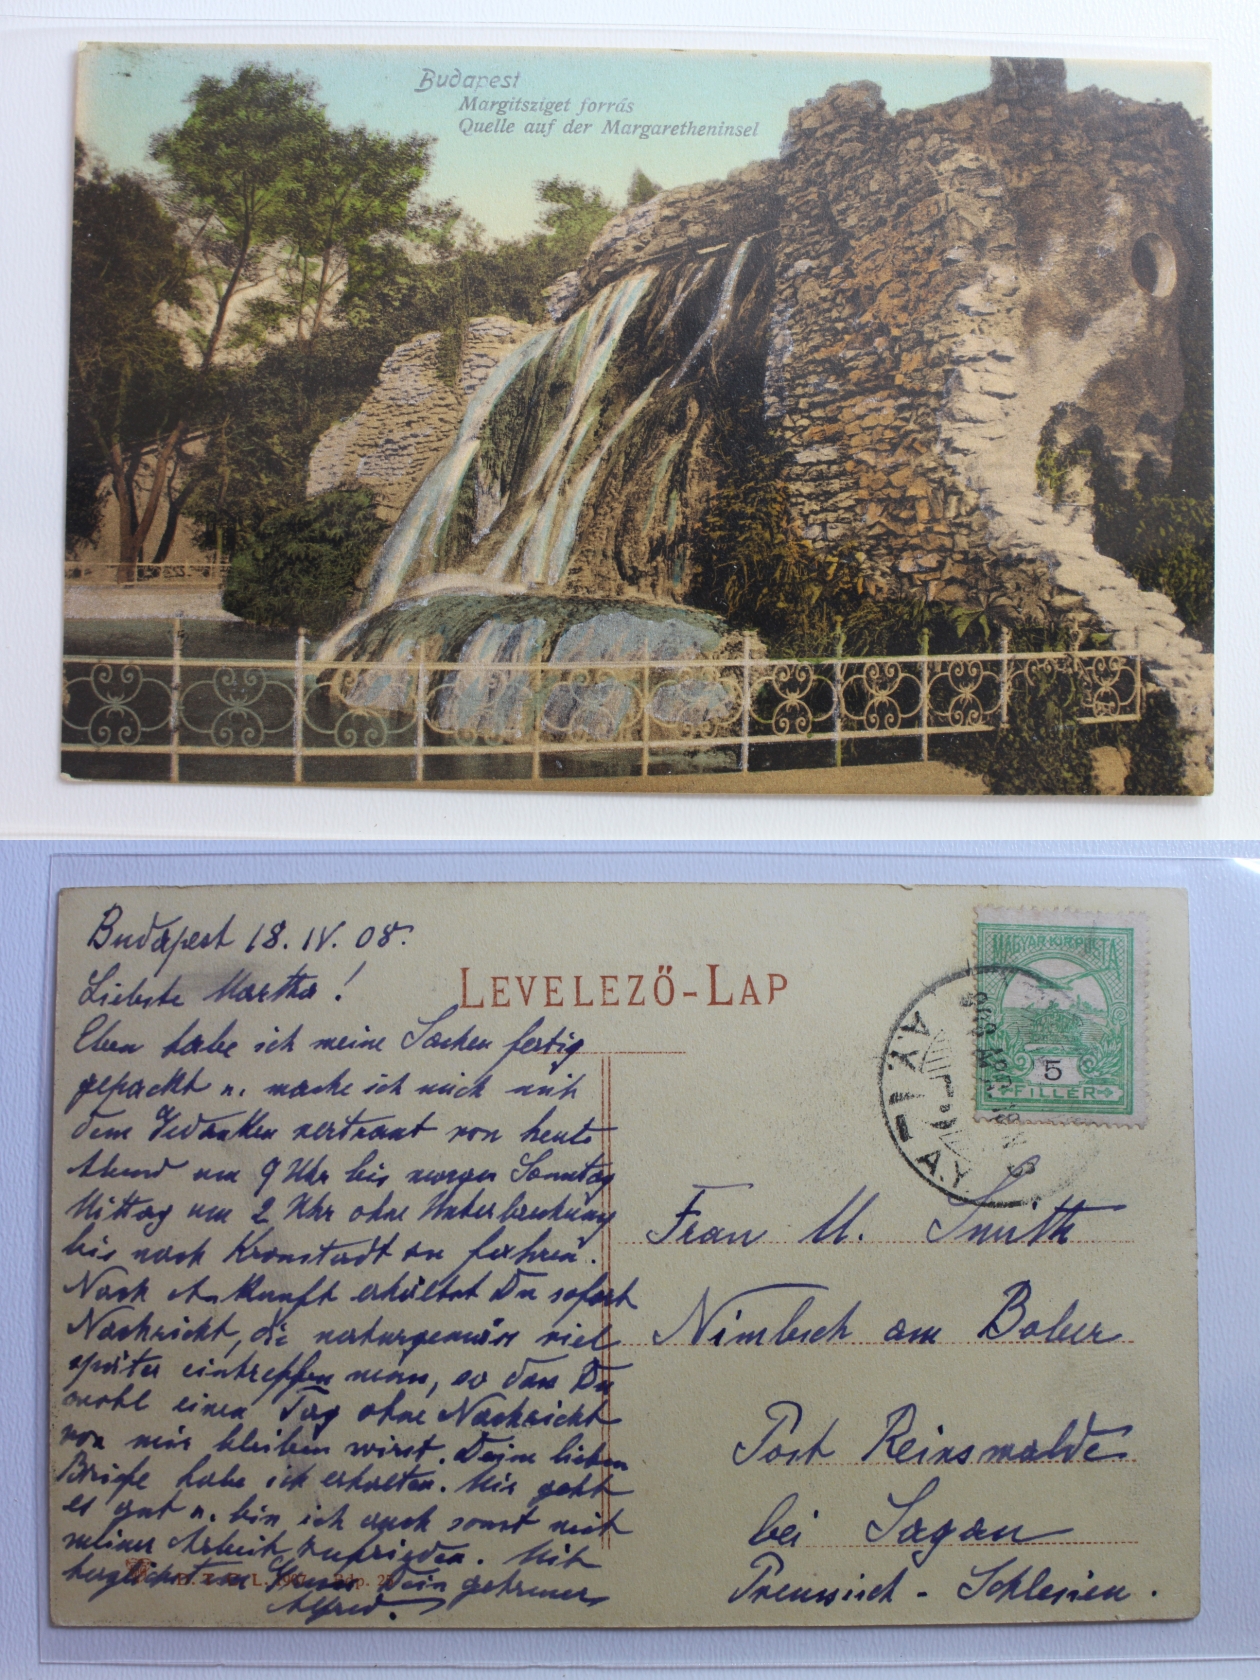 Budapest
Margitsziget forrás
Quelle auf der Margaretheninsel
Budapest 18. IV. 08.
Liebste Martha!
Eben habe ich meine Sachen fertig
gepackt u. mache ich mich mit
dem Gedanken vertraut von heute
Abend um 9 Uhr bis morgen Sonntag
Mittag um 2 Uhr ohne Unterbrechung
bis nach Kronstadt zu fahren.
Nach Ankunft erhältst Du sofort
Nachricht, die naturgemäss viel
später eintreffen muss, so dass Du
wohl einen Tag ohne Nachricht
von mir bleiben wirst. Deine lieben
Briefe habe ich erhalten. Mir geht
es gut u. bin ich auch sonst mit
meiner Arbeit zufrieden. Mit
herzlichsten Dein getreuer
Alfred.
LEVELEZŐ-LAP
MAGYAR·KIR·POSTA
5
FILLER
Frau M. Smith
Nimbsch am Bober
Post Reinswalde
bei Sagan
Preussisch-Schlesien.